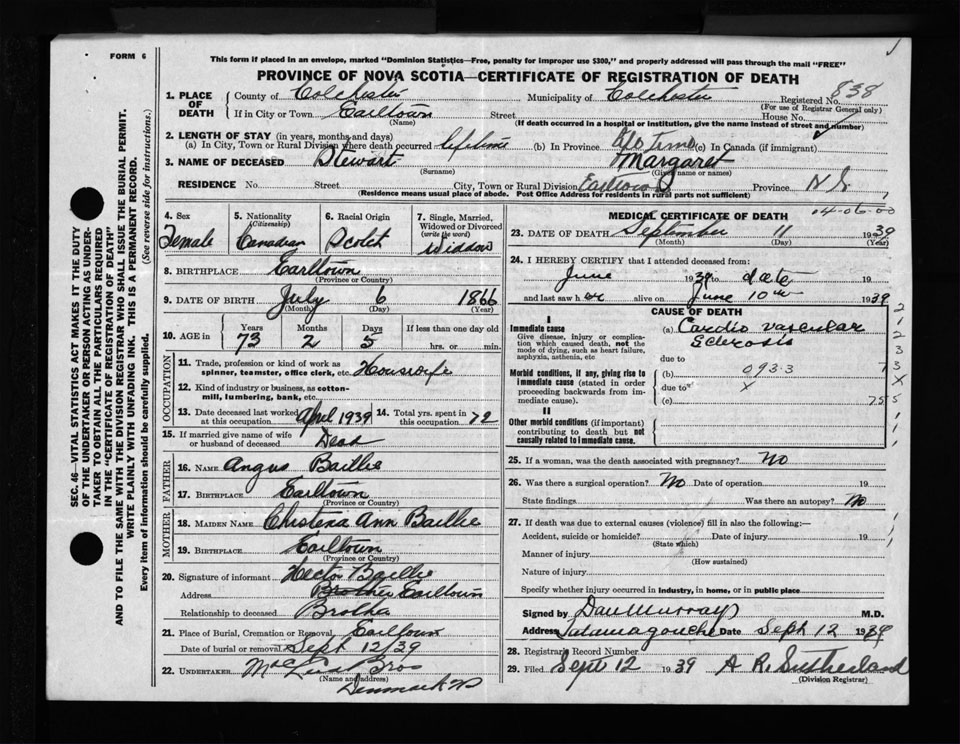 FORM 6
This form if placed in an envelope, marked "Dominion Statistics—Free, penalty for improper use $300," and properly addressed will pass through the mail "FREE"
PROVINCE OF NOVA SCOTIA—CERTIFICATE OF REGISTRATION OF DEATH
838
1. PLACE OF DEATH County of Colchester Municipality of Colchester Registered No.
(For use of Registrar General only)
If in City or Town Earltown Street House No.
(Name) (If death occurred in a hospital or institution, give the name instead of street and number)
2. LENGTH OF STAY (in years, months and days)
(a) In City, Town or Rural Division where death occurred lifetime (b) In Province (c) In Canada (if immigrant)
3. NAME OF DECEASED Stewart Margaret
(Surname) (Given name or names)
RESIDENCE No. Street City, Town or Rural Division Earltown Province N.S.
(Residence means usual place of abode. Post Office Address for residents in rural parts not sufficient)
04-06-00
4. Sex 5. Nationality (Citizenship) 6. Racial Origin 7. Single, Married, Widowed or Divorced (write the word)
Female Canadian Scotch Widdow
8. BIRTHPLACE Earltown
(Province or Country)
9. DATE OF BIRTH July 6 1866
(Month) (Day) (Year)
10. AGE in Years Months Days If less than one day old
73 2 5 hrs. or min.
OCCUPATION
11. Trade, profession or kind of work as
spinner, teamster, office clerk, etc. Housewife
12. Kind of industry or business, as cotton-
mill, lumbering, bank, etc.
13. Date deceased last worked at this occupation April 1939 14. Total yrs. spent in this occupation 72
15. If married give name of wife
or husband of deceased Dead
FATHER
16. NAME Angus Baillie
17. BIRTHPLACE Earltown
(Province or Country)
MOTHER
18. MAIDEN NAME Christena Ann Baillie
19. BIRTHPLACE Earltown
(Province or Country)
20. Signature of informant Hector Baillie
Address Brother Earltown
Relationship to deceased Brother
21. Place of Burial, Cremation or Removal Earltown
Date of burial or removal Sept 12/39
22. UNDERTAKER Bros
(Name and address)
Denmark NS
MEDICAL CERTIFICATE OF DEATH
23. DATE OF DEATH September 11 1939
(Month) (Day) (Year)
24. I HEREBY CERTIFY that I attended deceased from:
June 1939 to date 19
and last saw her alive on June 10th 1939
CAUSE OF DEATH
I
Immediate cause (a) Cardio vascular
Give disease, injury or complica- Sclerosis
tion which caused death, not
the mode of dying, such as heart failure,
asphyxia, asthenia, etc due to
Morbid conditions, if any, giving rise to (b) 093.3
immediate cause (stated in order due to X
proceeding backwards from im-
mediate cause). (c) 75
II
Other morbid conditions (if important)
contributing to death but not
causally related to immediate cause.
25. If a woman, was the death associated with pregnancy? No
26. Was there a surgical operation? No Date of operation 19
State findings Was there an autopsy? No
27. If death was due to external causes (violence) fill in also the following:—
Accident, suicide or homicide? Date of injury 19
(State which)
Manner of injury
(How sustained)
Nature of injury
Specify whether injury occurred in industry, in home, or in public place
Signed by Dan Murray M.D.
Address Tatamagouche Date Sept 12 1939
28. Registration Record Number
29. Filed Sept 12 1939 A R Sutherland
(Division Registrar)
SEC. 46—VITAL STATISTICS ACT MAKES IT THE DUTY
OF THE UNDERTAKER OR PERSON ACTING AS UNDER-
TAKER TO OBTAIN ALL THE PARTICULARS REQUIRED
IN THE "CERTIFICATE OF REGISTRATION OF DEATH"
AND TO FILE THE SAME WITH THE DIVISION REGISTRAR WHO SHALL ISSUE THE BURIAL PERMIT.
WRITE PLAINLY WITH UNFADING INK. THIS IS A PERMANENT RECORD.
Every item of information should be carefully supplied. (See reverse side for instructions.)